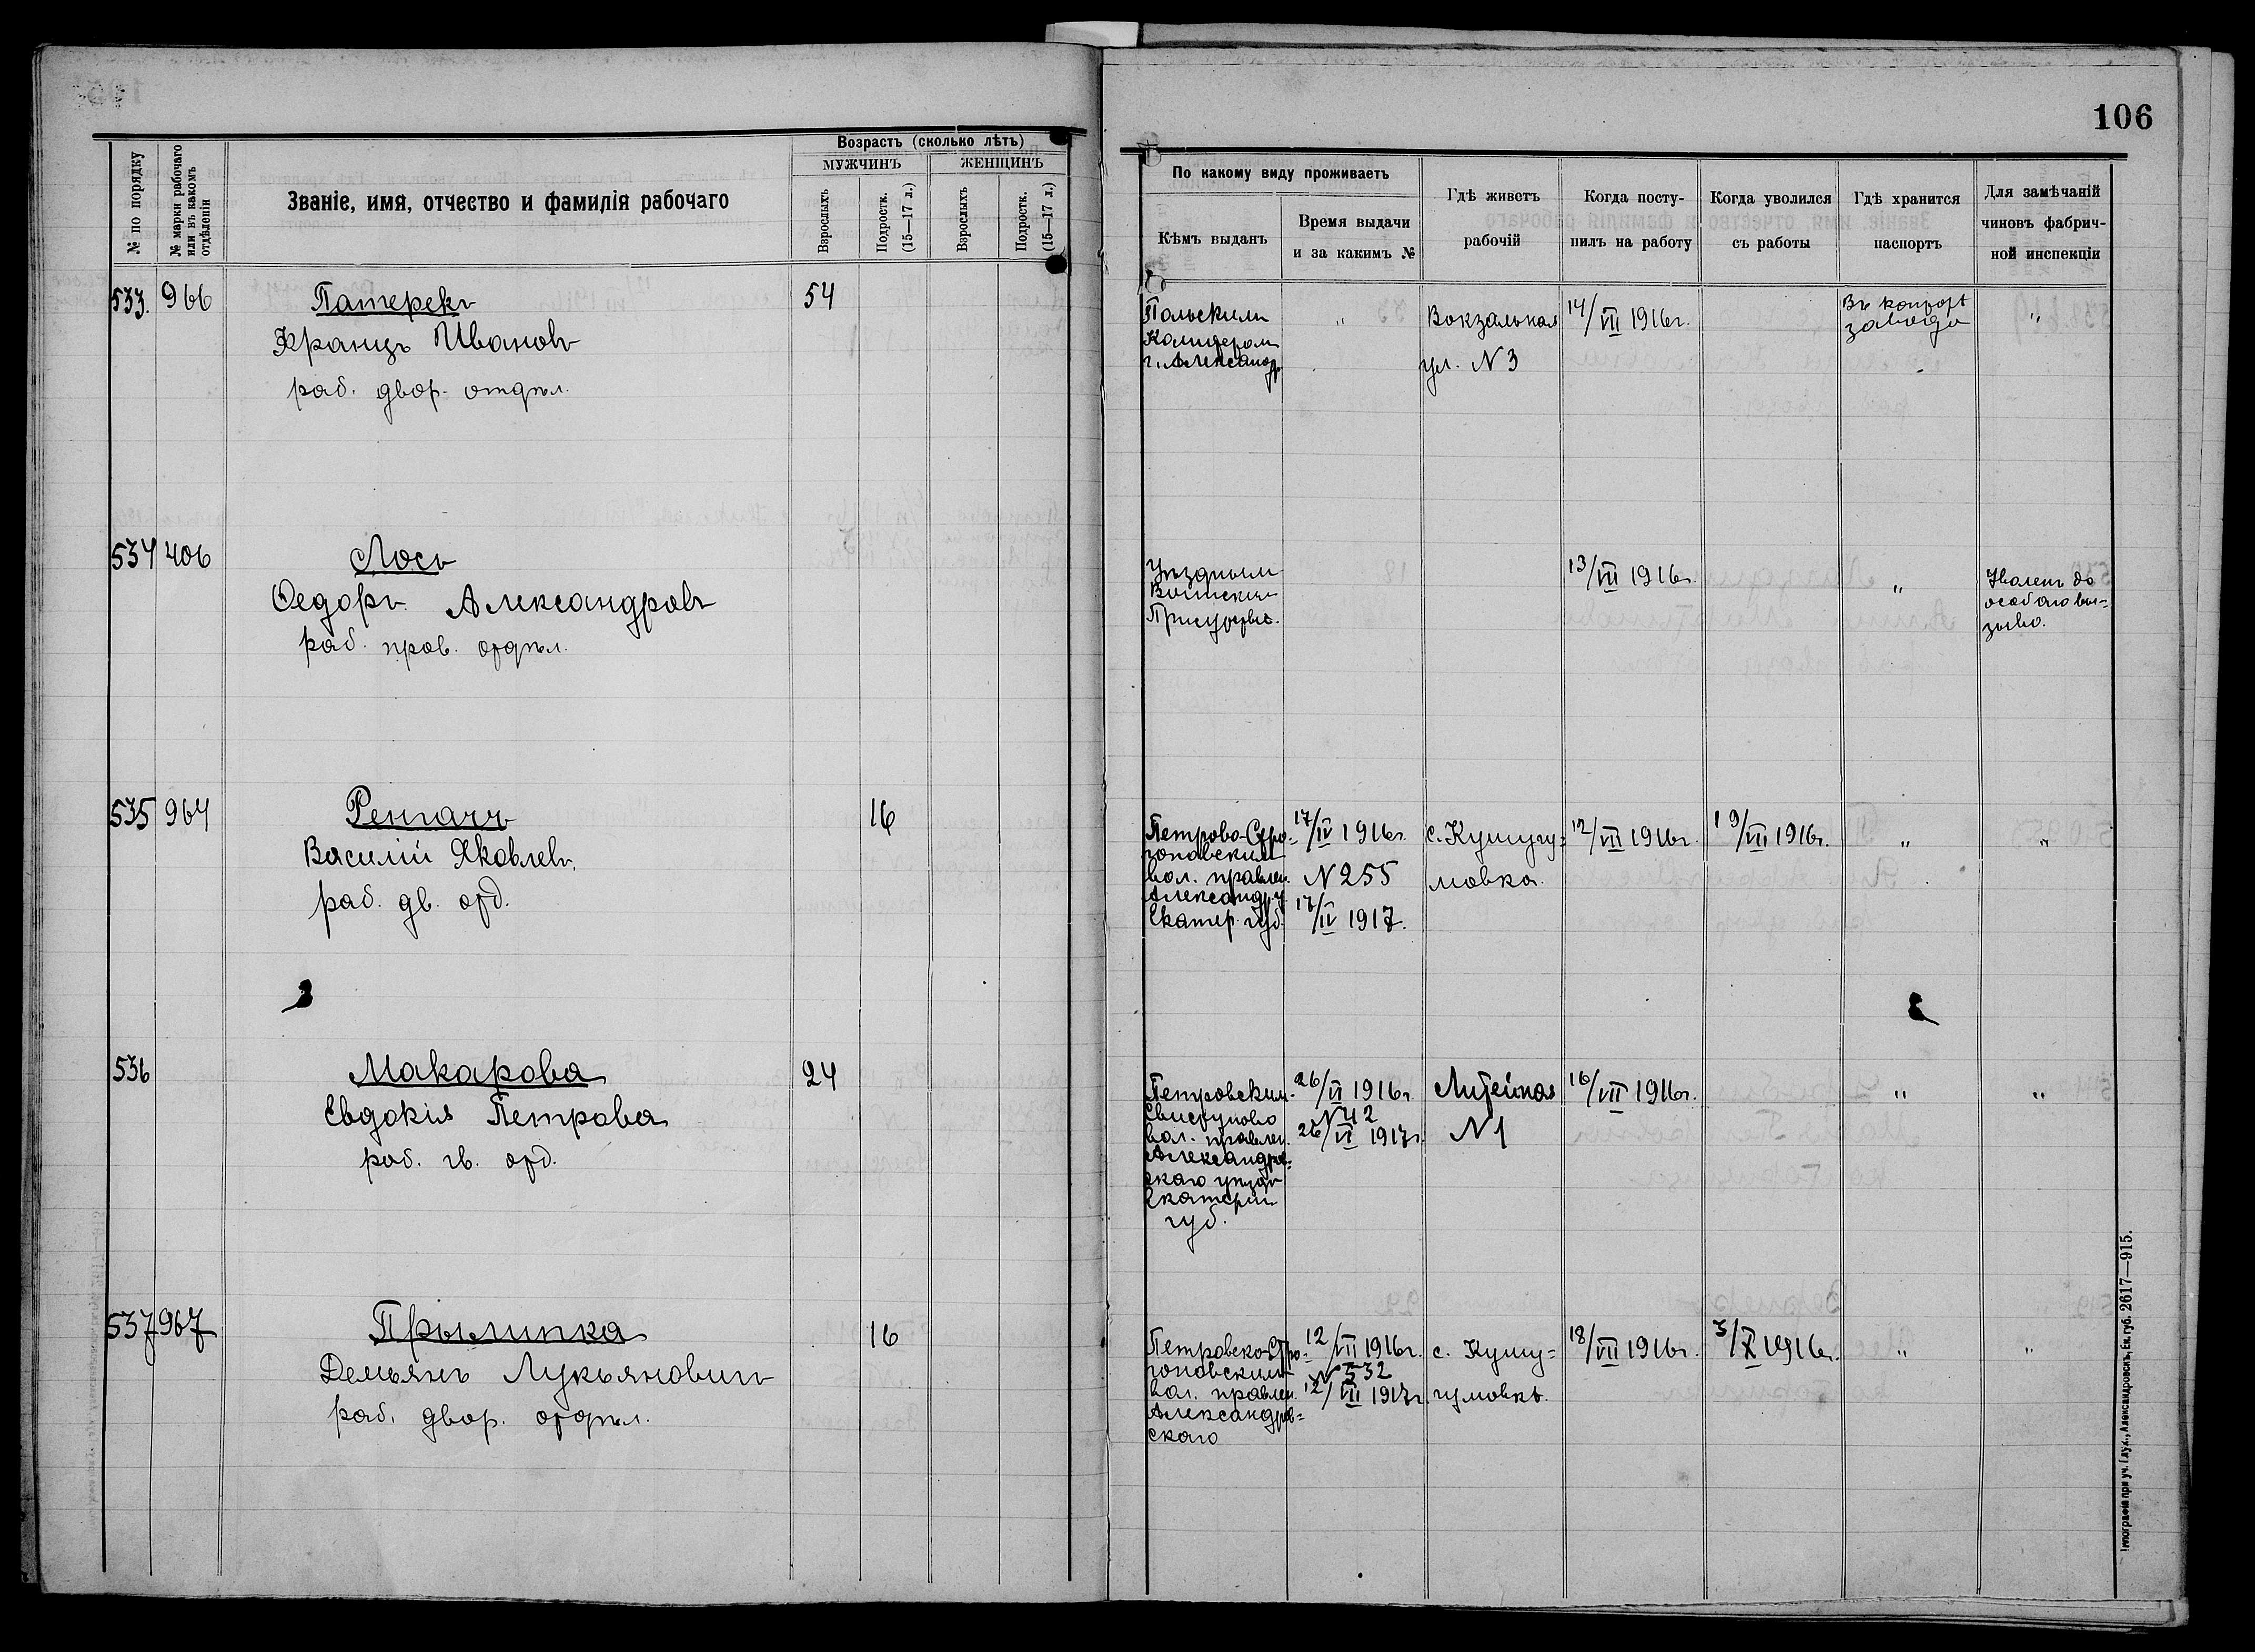 106
№ по порядку
№ марки рабочаго или въ какомъ отдѣленіи
Званіе, имя, отчество и фамилія рабочаго
Возрастъ (сколько лѣтъ)
МУЖЧИНЪ
ЖЕНЩИНЪ
Взрослыхъ
Подростк. (15—17 л.)
Взрослыхъ
Подростк. (15—17 л.)
По какому виду проживаетъ
Кѣмъ выданъ
Время выдачи
и за какимъ №
Гдѣ живетъ
рабочій
Когда посту-
пилъ на работу
Когда уволился
съ работы
Гдѣ хранится
паспортъ
Для замѣчаній
чиновъ фабрич-
ной инспекціи
533. 966
Патерекъ
Кранцъ Ивановъ
раб. двор. отдѣл.
54
Польскимъ
г. Александр
"
Вокзальная
ул. N 3
14/VII 1916г.
Въ
завода
"
534 406
Лось
Ѳедоръ Александровъ
раб. пров. отдѣл.
Уѣзднымъ
Воинскимъ
Присутств.
13/VII 1916г.
"
Уволенъ до
особаго вы=
зыва.
535 964
Ренгачъ
Василій Яковлевъ
раб. дв. отд.
16
вол. правлен.
Александр. у.
Екатер. губ.
17/IV 1916г.
N 255
17/IV 1917.
с. Кушугу=
мовка.
12/VII 1916г.
19/VII 1916г.
"
"
536
Макарова
Евдокія Петрова
раб. гв. отд.
24
Петровским-
Свистуново
вол. правлен.
Александров=
скаго уѣзда
Екатерин
губ.
26/VI 1916г.
N 42
26/VI 1917г.
Литейная
N 1
16/VII 1916г.
"
"
537 967
Прылипка
Демьянъ Лукьяновичъ
раб. двор. отдѣл.
16
вол. правлен.
Александров=
скаго
12/VII 1916г.
N 532
12/VII 1917г.
с. Кушу=
гумовкѣ.
18/VII 1916г.
3/X 1916г.
"
"
Типографія при уч. Глух., Александровскъ, Ек. губ. 2617—915.